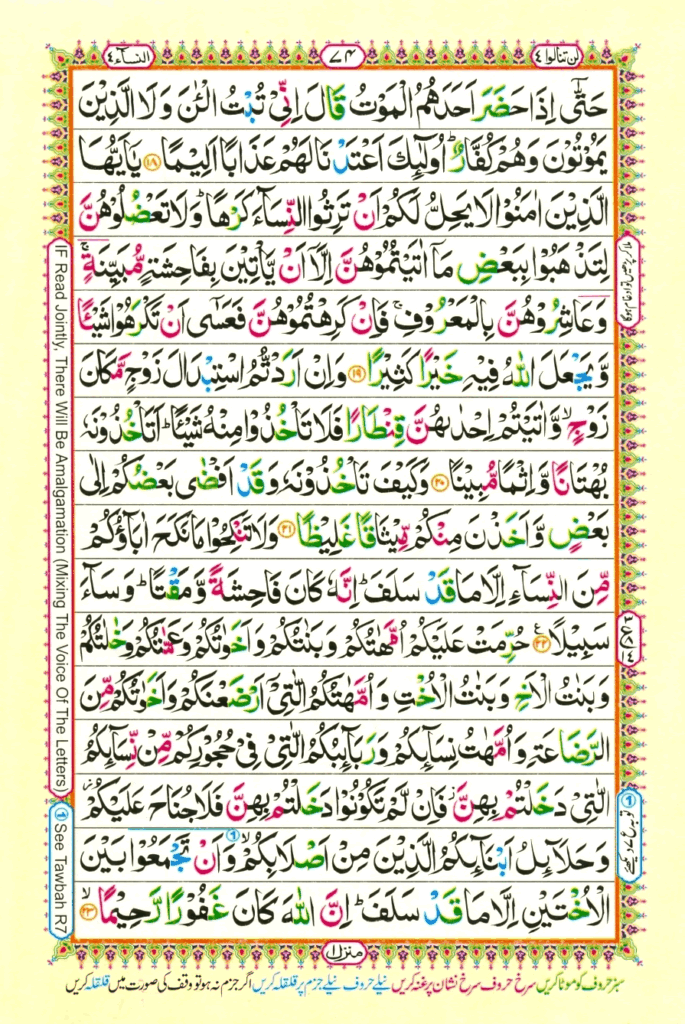 لن تنالوا ٤
٧٤
النسآء ٤
حَتّٰۤى اِذَا حَضَرَ اَحَدَهُمُ الْمَوْتُ قَالَ اِنِّىْ تُبْتُ الْـٰٔنَ وَلَا الَّذِيْنَ
يَمُوْتُوْنَ وَهُمْ كُفَّارٌ ؕ اُولٰٓئِكَ اَعْتَدْنَا لَهُمْ عَذَابًا اَلِيْمًا ۝۱۸ يٰۤاَيُّهَا
الَّذِيْنَ اٰمَنُوْا لَا يَحِلُّ لَكُمْ اَنْ تَرِثُوا النِّسَآءَ كَرْهًا ؕ وَلَا تَعْضُلُوْهُنَّ
لِتَذْهَبُوْا بِبَعْضِ مَاۤ اٰتَيْتُمُوْهُنَّ اِلَّاۤ اَنْ يَّاْتِيْنَ بِفَاحِشَةٍ مُّبَيِّنَةٍ ۚ
وَعَاشِرُوْهُنَّ بِالْمَعْرُوْفِ ۚ فَاِنْ كَرِهْتُمُوْهُنَّ فَعَسٰۤى اَنْ تَكْرَهُوْا شَيْـًٔا
وَّيَجْعَلَ اللّٰهُ فِيْهِ خَيْرًا كَثِيْرًا ۝۱۹ وَاِنْ اَرَدْتُّمُ اسْتِبْدَالَ زَوْجٍ مَّكَانَ
زَوْجٍ ۙ وَّاٰتَيْتُمْ اِحْدٰٮهُنَّ قِنْطَارًا فَلَا تَاْخُذُوْا مِنْهُ شَيْـًٔا ؕ اَتَاْخُذُوْنَهٗ
بُهْتَانًا وَّاِثْمًا مُّبِيْنًا ۝۲۰ وَكَيْفَ تَاْخُذُوْنَهٗ وَقَدْ اَفْضٰى بَعْضُكُمْ اِلٰى
بَعْضٍ وَّاَخَذْنَ مِنْكُمْ مِّيْثَاقًا غَلِيْظًا ۝۲۱ وَلَا تَنْكِحُوْا مَا نَكَحَ اٰبَآؤُكُمْ
مِّنَ النِّسَآءِ اِلَّا مَا قَدْ سَلَفَ ؕ اِنَّهٗ كَانَ فَاحِشَةً وَّمَقْتًا ؕ وَسَآءَ
سَبِيْلًا ۝۲۲ حُرِّمَتْ عَلَيْكُمْ اُمَّهٰتُكُمْ وَبَنٰتُكُمْ وَاَخَوٰتُكُمْ وَعَمّٰتُكُمْ وَخٰلٰتُكُمْ
وَبَنٰتُ الْاَخِ وَبَنٰتُ الْاُخْتِ وَاُمَّهٰتُكُمُ الّٰتِىْۤ اَرْضَعْنَكُمْ وَاَخَوٰتُكُمْ مِّنَ
الرَّضَاعَةِ وَاُمَّهٰتُ نِسَآئِكُمْ وَرَبَآئِبُكُمُ الّٰتِىْ فِىْ حُجُوْرِكُمْ مِّنْ نِّسَآئِكُمُ
الّٰتِىْ دَخَلْتُمْ بِهِنَّ ؗ فَاِنْ لَّمْ تَكُوْنُوْا دَخَلْتُمْ بِهِنَّ فَلَا جُنَاحَ عَلَيْكُمْ ؗ
وَحَلَآئِلُ اَبْنَآئِكُمُ الَّذِيْنَ مِنْ اَصْلَابِكُمْ ۙ وَاَنْ تَجْمَعُوْا بَيْنَ
الْاُخْتَيْنِ اِلَّا مَا قَدْ سَلَفَ ؕ اِنَّ اللّٰهَ كَانَ غَفُوْرًا رَّحِيْمًا ۝۲۳ ۙ
منزل ۱
سبز حروف کو موٹا کریں سرخ حروف سرخ نشان پر غنہ کریں نیلے حروف نیلے جزم پر قلقلہ کریں اگر جزم نہ ہو تو وقف کی صورت میں قلقلہ کریں
IF Read Jointly, There Will Be Amalgamation (Mixing The Voice Of The Letters)
① See Tawbah R7